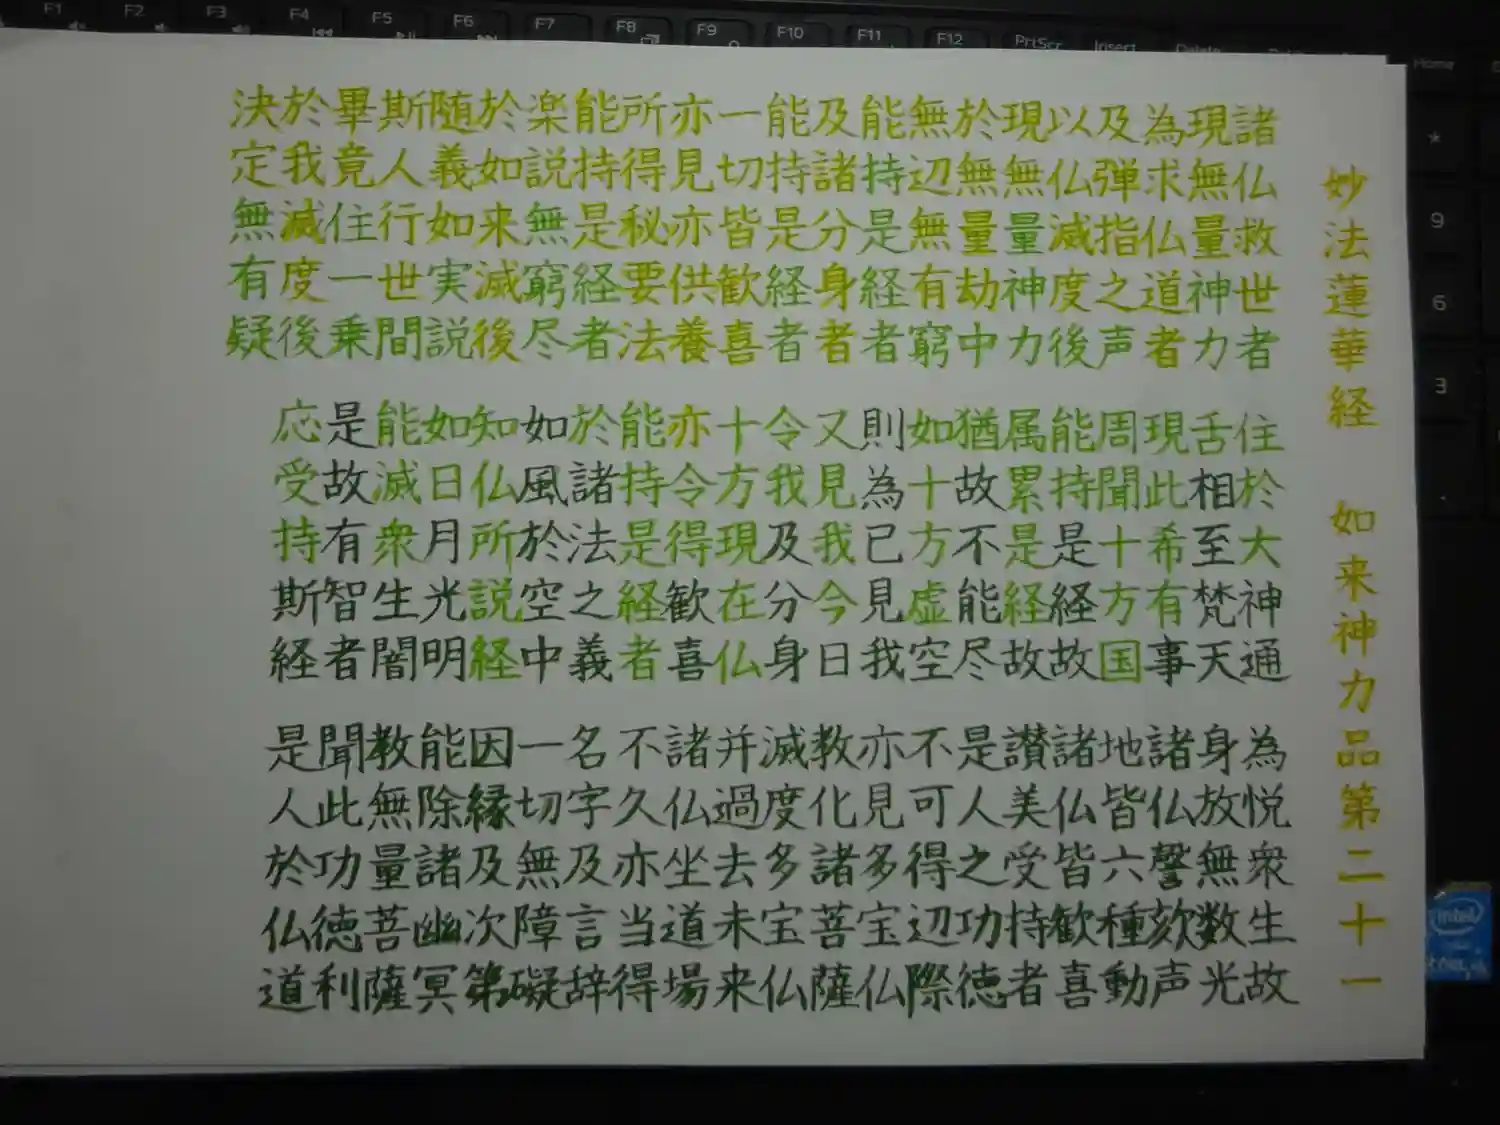 F1 F2 F3 F4 F5 F6 F7 F8 F9 F10 F11 F12 PrtScr Insert Delete Home
*
9
6
3
intel
妙法蓮華経 如来神力品第二十一
諸仏救世者 住於大神通 為悦衆生故
現無量神力 舌相至梵天 身放無数光
為求仏道者 現此希有事 諸仏謦欬声
及弾指之声 周聞十方国 地皆六種動
以仏滅度後 能持是経故 諸仏皆歓喜
現無量神力 属累是経故 讃美受持者
於無量劫中 猶故不能尽 是人之功徳
無辺無有窮 如十方虚空 不可得辺際
能持是経者 則為已見我 亦見多宝仏
及諸分身者 又見我今日 教化諸菩薩
能持是経者 令我及分身 滅度多宝仏
一切皆歓喜 十方現在仏 并過去未来
亦見亦供養 亦令得歓喜 諸仏坐道場
所得秘要法 能持是経者 不久亦当得
能持是経者 於諸法之義 名字及言辞
楽説無窮尽 如風於空中 一切無障礙
於如来滅後 知仏所説経 因縁及次第
随義如実説 如日月光明 能除諸幽冥
斯人行世間 能滅衆生闇 教無量菩薩
畢竟住一乗 是故有智者 聞此功徳利
於我滅度後 応受持斯経 是人於仏道
決定無有疑